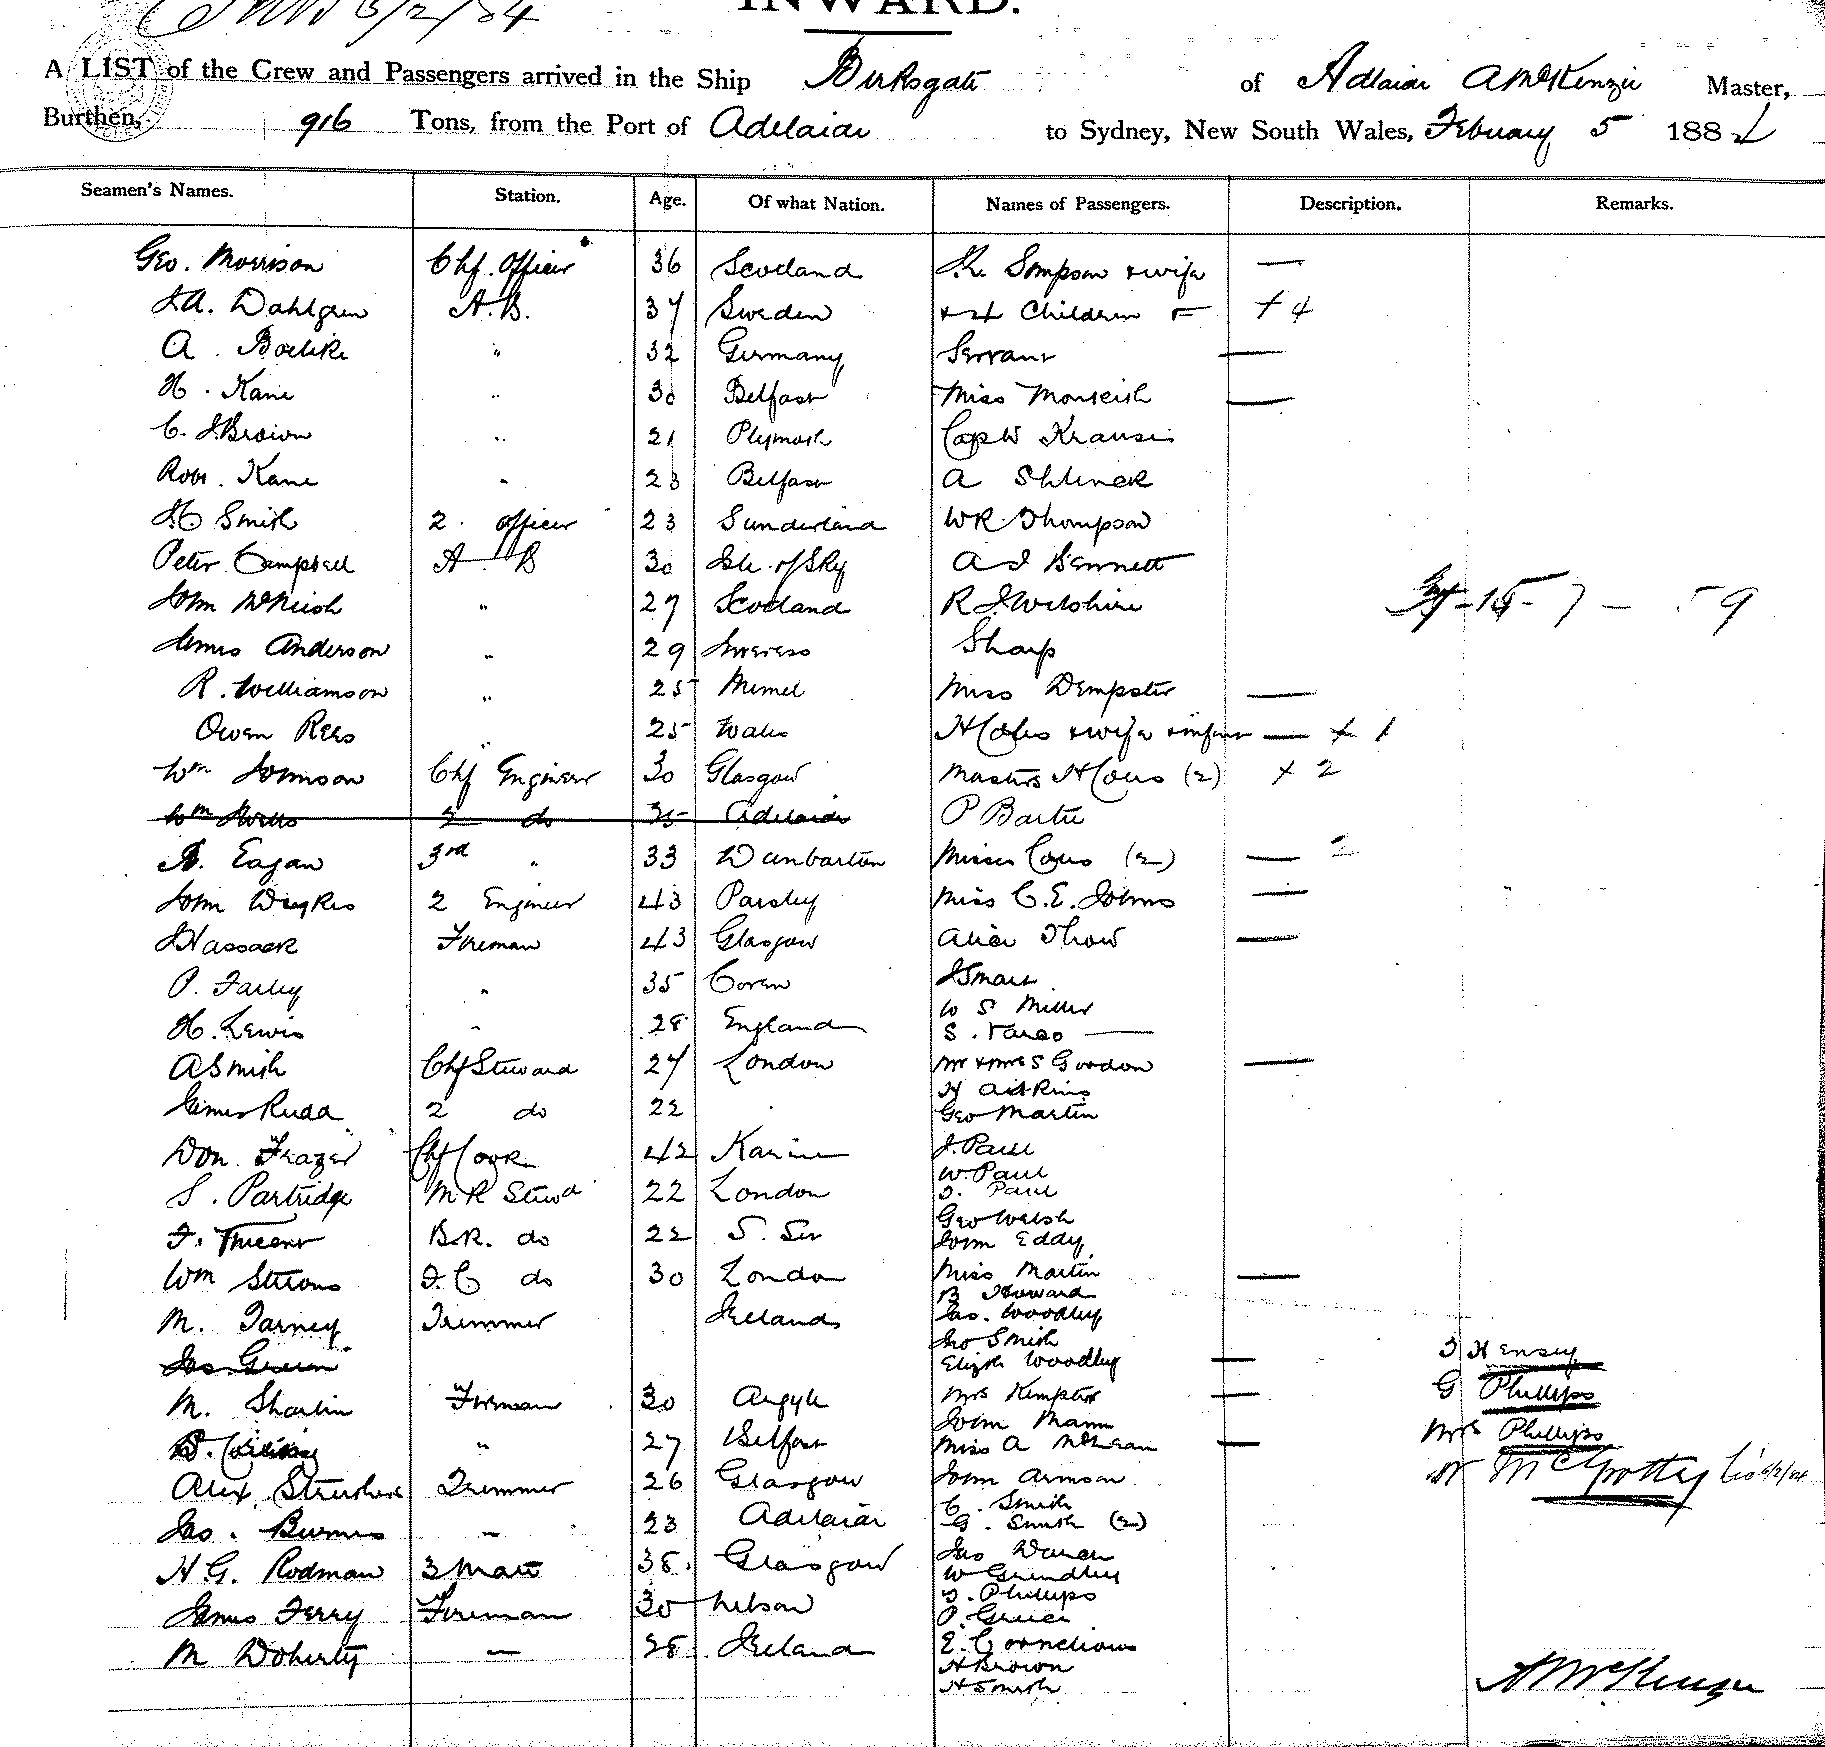 INWARD.
A LIST of the Crew and Passengers arrived in the Ship Birksgate of Adelaide A McKenzie Master,
Burthen, 916 Tons, from the Port of Adelaide to Sydney, New South Wales, February 5 1884
Seamen's Names. Station. Age. Of what Nation. Names of Passengers. Description. Remarks.
Geo. Morrison Chf. Officer 36 Scotland Simpson & wife
Dahlgren A.B. 37 Sweden & 4 Children + 4
A. " 32 Germany Servant
H. Kane " 30 Belfast Miss Monteith
C. J Brown " 21 Plymouth Capt Krause
Robt. Kane " 23 Belfast A
Smith 2. Officer 23 Sunderland WR Thompson
Peter Campbell A B 30 Isle of Sky A J Bennett
John McNeish " 27 Scotland R J Wilshire
James Anderson " 29 Sharp
R. Williamson " 25 Memel Miss Dempster
Owen Rees " 25 Wales H Coles & wife & infant + 1
Wm Johnson Chf Engineer 30 Glasgow Masters H Coles (2) + 2
Wm 2 do 35 Adelaide P
Eagan 3rd " 33 Dunbarton Misses Coles (2) 2
John Dykes 2 Engineer 43 Paisley Miss C. E. Johns
J Hassack Fireman 43 Glasgow Alice Thow
P. Farley " 35 J Smart
W S Miller
H. Lewis " 28 England S.
A Smith Chf Steward 27 London Mr & Mrs S Gordon
H Aitkins
James Rudd 2 do 22 Geo Martin
Don. Frazer Chf Cook 42 J. Paull
W. Paull
S. Partridge M R Stewd 22 London Paull
Geo Welsh
F. B.R. do 22 John Eddy
Wm F.C do 30 London Miss Martin
B Howard
M. Tarney Trimmer Ireland Jas. Woodley
Jno Smith
Jas Green Elizth Woodley
T Hensey
M. Sharlin Fireman 30 Argyle Mrs Kempster G Phillips
John Mann
" 27 Belfast Miss A McLean Mrs Phillips
Alex Struthers Trimmer 26 Glasgow John Armson
C. Smith
Jas. Burnes " 23 Adelaide G. Smith (2)
Jas
H G. Rodman 3 Mate 38. Glasgow W Grindley
T. Phillips
James Ferry Fireman 30 Nelson P.
M Doherty " 28 Ireland E. Cornelious
H Brown
H Smith
A McKenzie